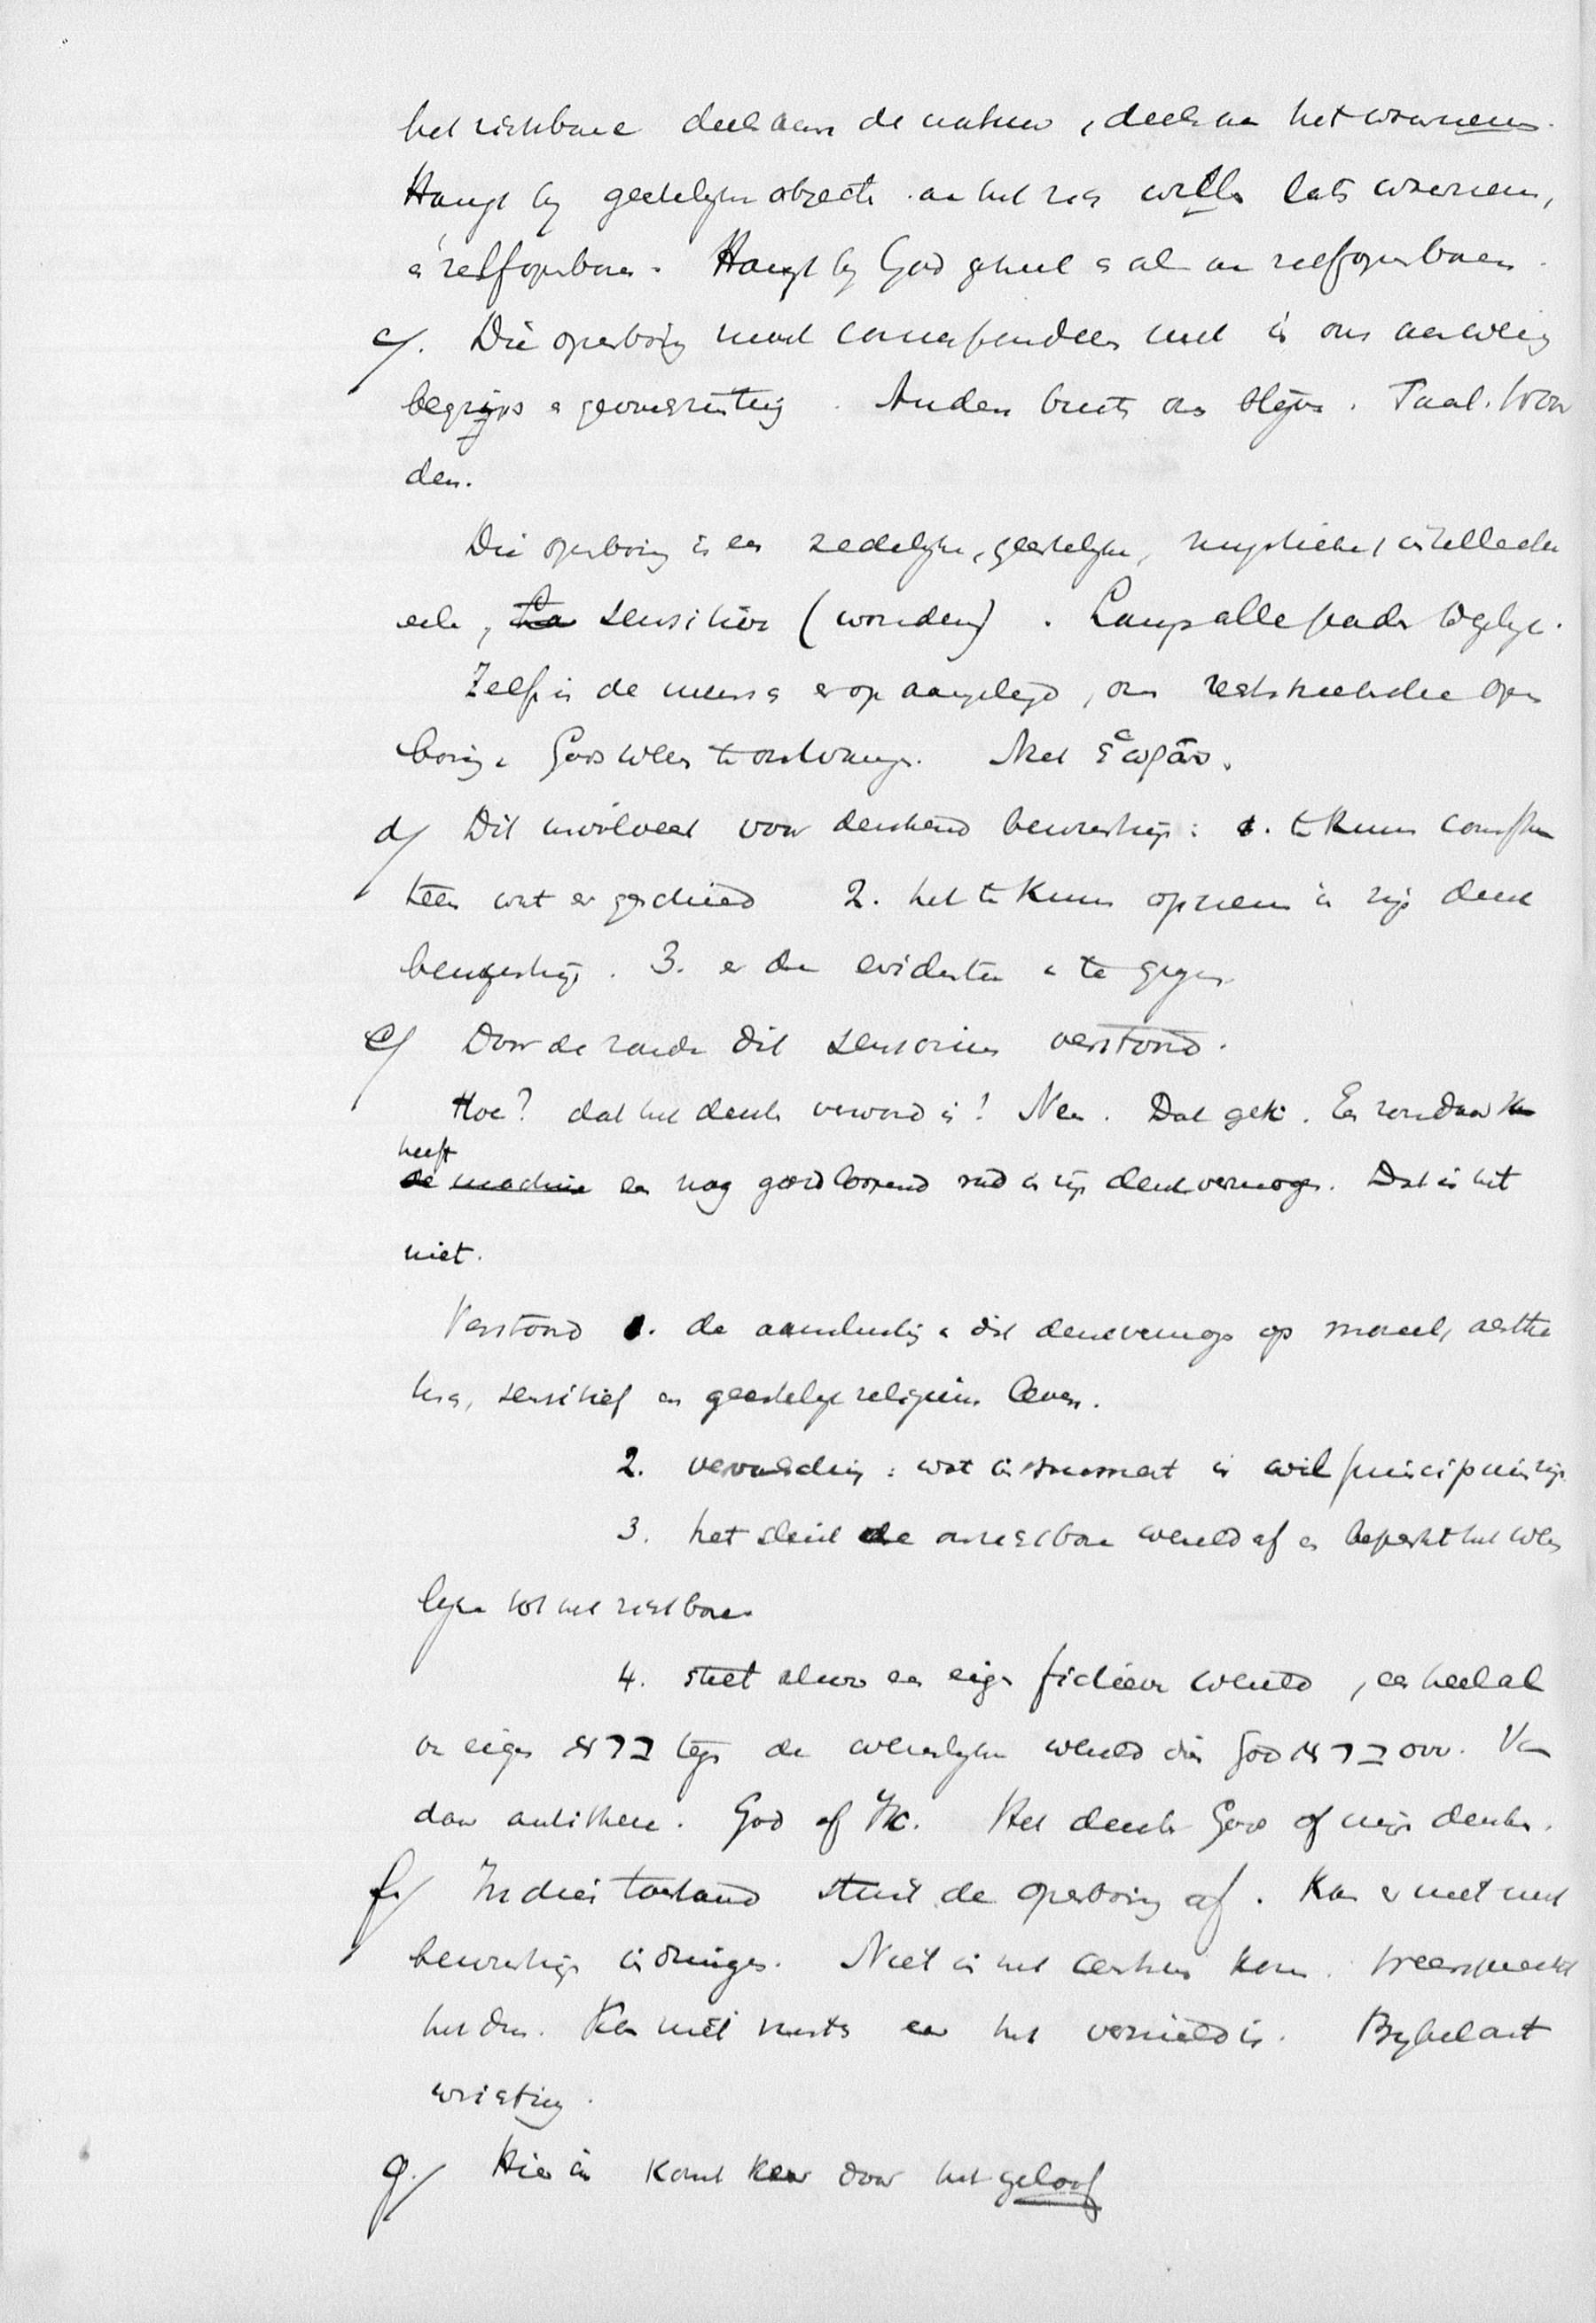 het zichtbare deels aan de natuur, deels aan het waarnemen.
Hangt bij geestelijke objecten aan het zich willen laten waarnemen,
zelfopenbaren. Hangt bij God geheel en al aan zelfopenbaren.
c/. Die openbaring moet correspondeeren met in ons aanwezig
begrips en gewaarwording. Anders buiten ons blijven. Taal. Woor
den.
Die openbaring is een zedelijke, geestelijke, mystieke, intellectu
eele, sensitieve (wonderen). Langs alle paden tegelijk.
Zelf is de mensch erop aangelegd, om rechtstreeksche open
baring Gods wezen te ontvangen. Met
d/ Dit involveert voor denkend bewustzijn: 1. te kunnen consta
teeren wat er geschied 2. het te kunnen opnemen in zijn denk
bewustzijn. 3. er de evidentie te
e/ Door de zonde dit sensorium verstoord.
Hoe? dat het denken verward is? Neen. Dat gek. Een zondaar
heeft
de machine een nog goed loopend rad in zijn denkvermogen. Dat is het
niet.
Verstoord 1. de aansluiting dit denkvermogen op moreel, aesthe
tisch, sensitief en geestelijk religieus leven.
2. verandering: wat instrument is wil principium zijn
3. het sluit de onzichtbare wereld af en beperkt het wezen
lijke tot het zichtbare
4. stelt alsoo een eigen fictieve wereld, een heelal
eigen ברא tegen de wezenlijke wereld die God ברא over. Van
daar antithese. God of Ik. Het denken Gods of mijn denken.
f./ In dien toestand stuit de openbaring af. Kan er niet met
bewustzijn indringen. Niet in het centrum komen. Weerspreekt
het dus. Kan niet rusten eer het vernield is. Bijbelont
wrichting.
g./ Hier in komt keer door het geloof